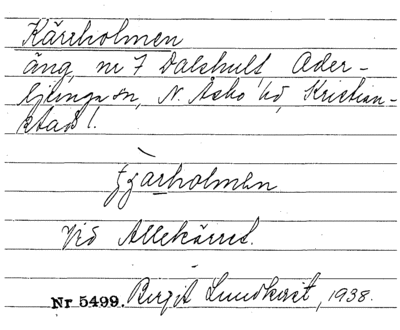 Kärrholmen
äng, nr 7 Dalshult Ader-
ljunga sn, N. Åsbo hd, Kristian-
stads l.
tjarholmen
Vid Allekärret.
Nr 5499. Birgit Lundkvist, 1938.